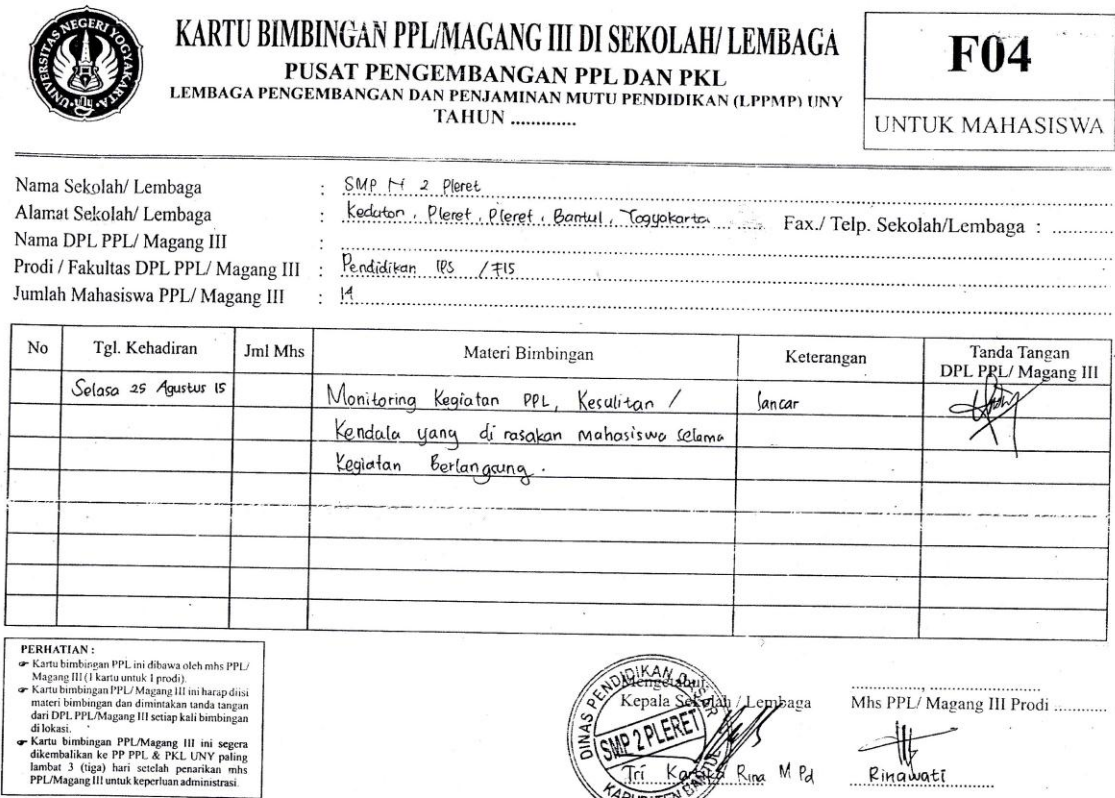 UNIVERSITAS NEGERI YOGYAKARTA
KARTU BIMBINGAN PPL/MAGANG III DI SEKOLAH/ LEMBAGA
PUSAT PENGEMBANGAN PPL DAN PKL
LEMBAGA PENGEMBANGAN DAN PENJAMINAN MUTU PENDIDIKAN (LPPMP) UNY
TAHUN .............
F04
UNTUK MAHASISWA
Nama Sekolah/ Lembaga : SMP N 2 Pleret
Alamat Sekolah/ Lembaga : Kedaton, Pleret, Pleret, Bantul, Yogyakarta Fax./ Telp. Sekolah/Lembaga : ............
Nama DPL PPL/ Magang III :
Prodi / Fakultas DPL PPL/ Magang III : Pendidikan IPS / FIS
Jumlah Mahasiswa PPL/ Magang III : 14
No Tgl. Kehadiran Jml Mhs Materi Bimbingan Keterangan Tanda Tangan
DPL PPL/ Magang III
Selasa 25 Agustus 15 Monitoring Kegiatan PPL, Kesulitan / lancar
Kendala yang di rasakan mahasiswa selama
Kegiatan Berlangsung.
PERHATIAN :
☞ Kartu bimbingan PPL ini dibawa oleh mhs PPL/
Magang III (1 kartu untuk 1 prodi).
☞ Kartu bimbingan PPL/ Magang III ini harap diisi
materi bimbingan dan dimintakan tanda tangan
dari DPL PPL/Magang III setiap kali bimbingan
di lokasi.
☞ Kartu bimbingan PPL/Magang III ini segera
dikembalikan ke PP PPL & PKL UNY paling
lambat 3 (tiga) hari setelah penarikan mhs
PPL/Magang III untuk keperluan administrasi.
Mengetahui,
Kepala Sekolah / Lembaga
DINAS PENDIDIKAN DASAR
SMP 2 PLERET
KABUPATEN BANTUL
Tri Kartika Rina M Pd
Mhs PPL/ Magang III Prodi ............
Rinawati